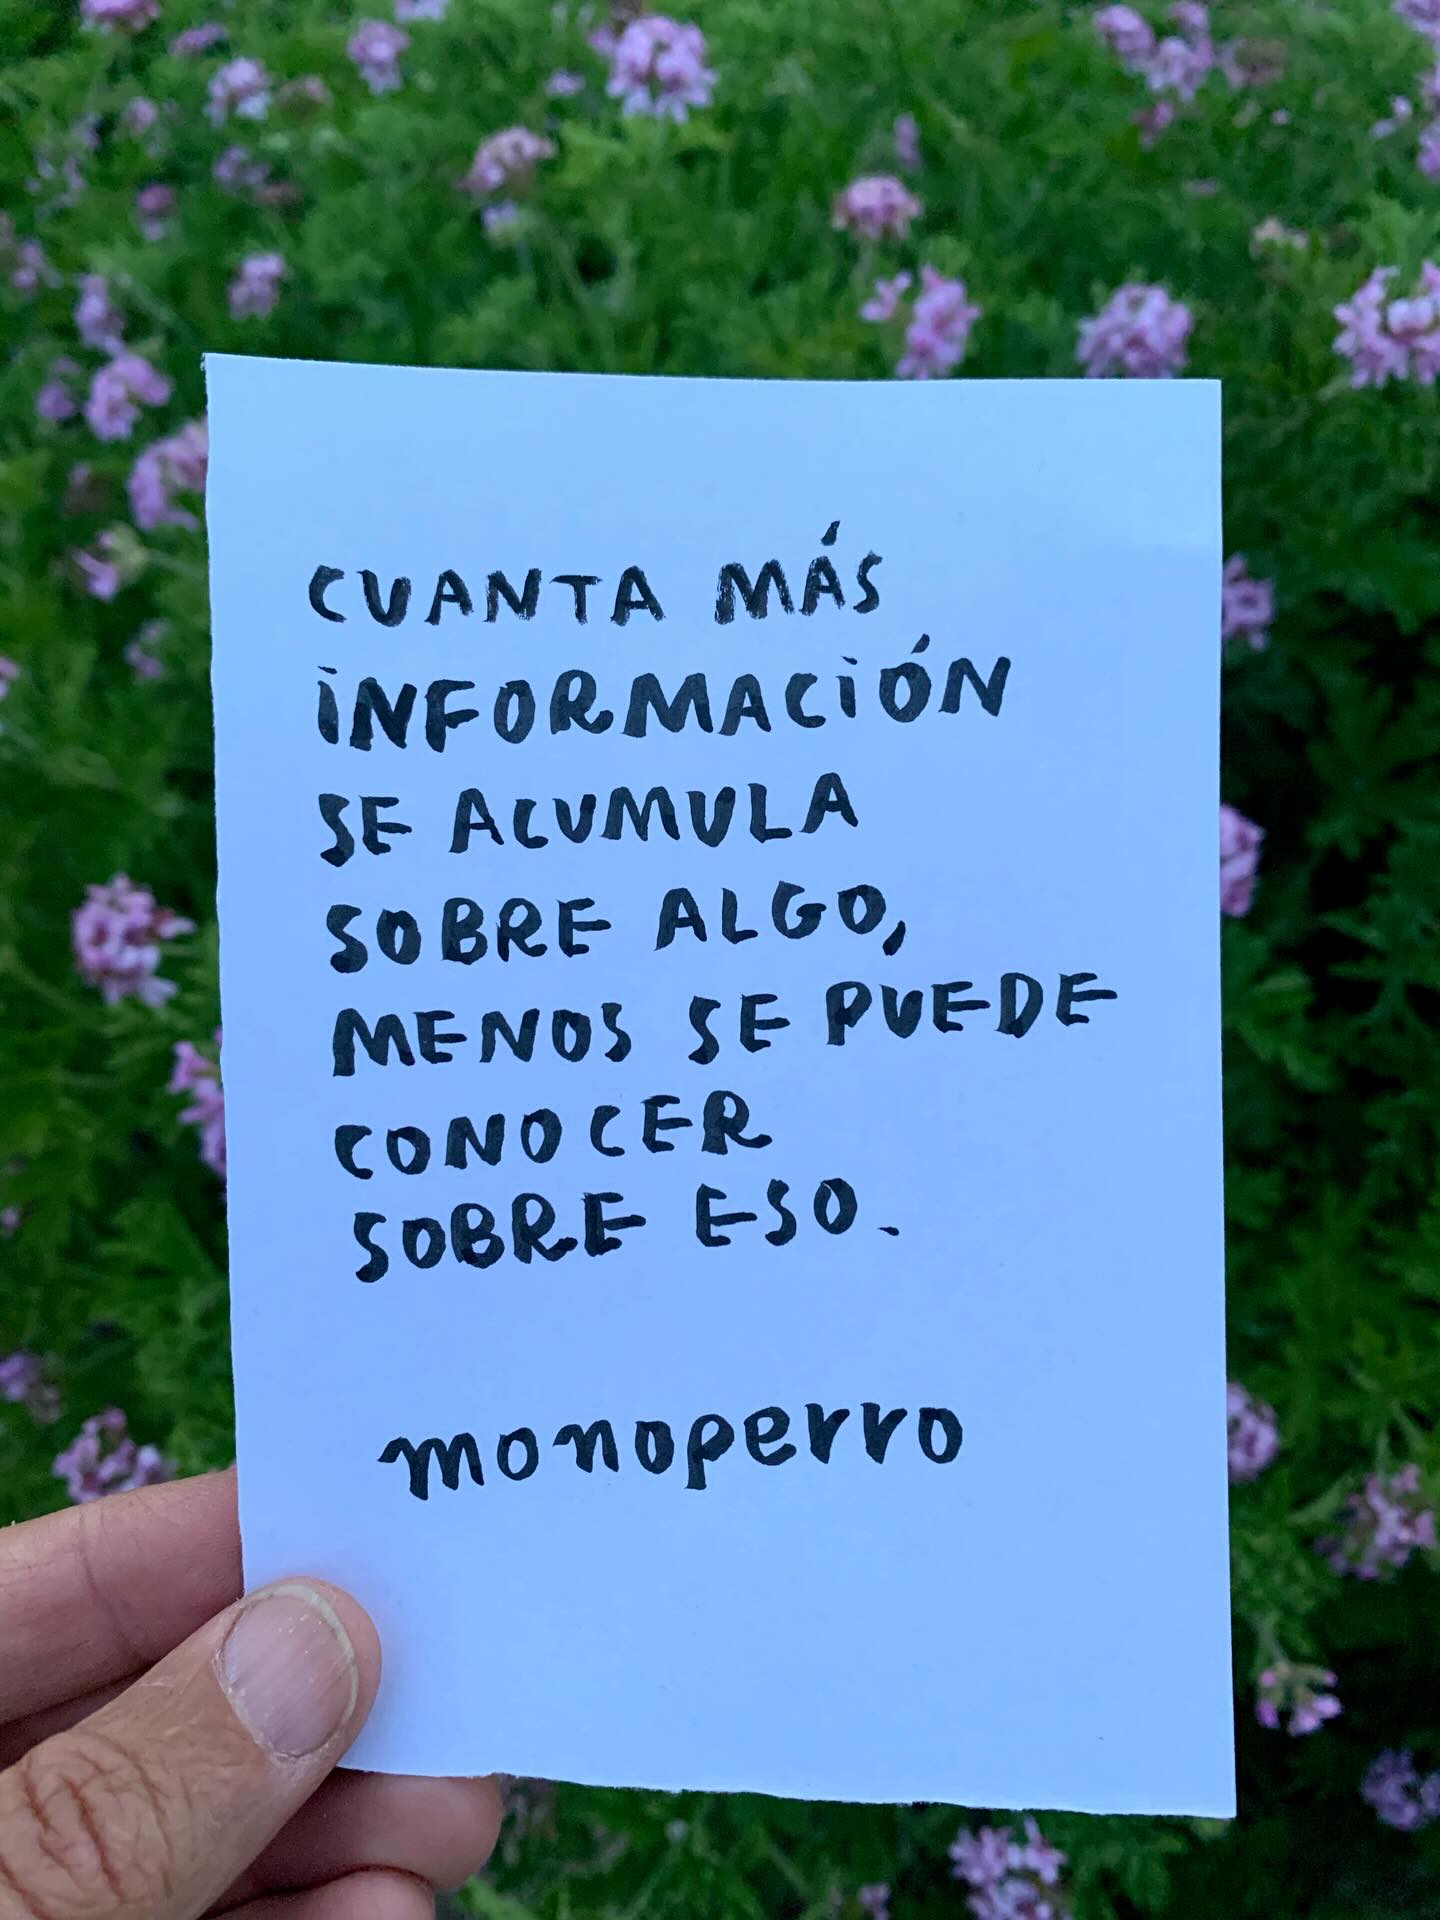 CUANTA MÁS
INFORMACIÓN
SE ACUMULA
SOBRE ALGO,
MENOS SE PUEDE
CONOCER
SOBRE ESO.
monoperro